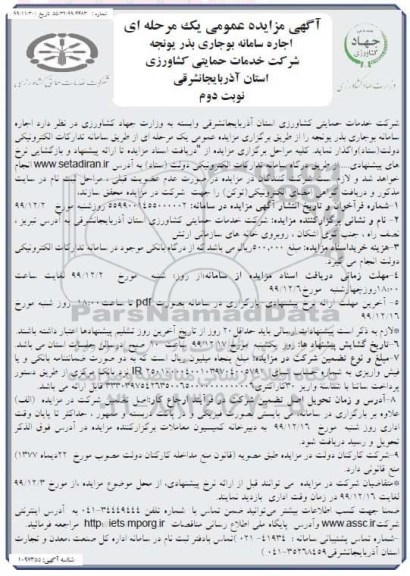 آگهی مزایده عمومی یک مرحله ای
اجاره سامانه بوجاری بذر یونجه
شرکت خدمات حمایتی کشاورزی
استان آذربایجانشرقی
نوبت دوم
جهاد
کشاورزی
شرکت خدمات حمایتی کشاورزی استان آذربایجانشرقی وابسته به وزارت جهاد کشاورزی در نظر دارد اجاره
سامانه بوجاری بذر یونجه را از طریق برگزاری مزایده عمومی یک مرحله ای از طریق سامانه تدارکات الکترونیکی
دولت(ستاد)واگذار نماید. کلیه مراحل برگزاری مزایده از "دریافت اسناد مزایده تا ارائه پیشنهاد و بازگشایی نرخ
های پیشنهادی" از طریق درگاه سامانه تدارکات الکترونیکی دولت (ستاد) به آدرس www.setadiran.ir انجام
خواهد شد و لازم است شرکت کنندگان در مزایده در صورت عدم عضویت قبلی، مراحل ثبت نام در سایت
مذکور و دریافت گواهی امضای الکترونیکی(توکن) را جهت شرکت در مزایده محقق سازند.
۱-شماره فراخوان و تاریخ انتشار آگهی مزایده در سامانه: روز شنبه مورخ ۹۹/۱۲/۲
۲- نام و نشانی برگزارکننده مزایده: شرکت خدمات حمایتی کشاورزی استان آذربایجانشرقی به آدرس تبریز،
نصف راه، جنب روبروی خانه های سازمانی ارتش
۳-هزینه خرید اسناد مزایده: مبلغ ۵۰۰,۰۰۰ریال می باشد که از درگاه بانکی موجود در سامانه تدارکات الکترونیکی
دولت انجام می گیرد.
۴-مهلت زمانی دریافت اسناد مزایده از سامانه:از روز شنبه مورخ ۹۹/۱۲/۲ لغایت ساعت
۱۸:۰۰روزچهارشنبه مورخ ۹۹/۱۲/۶
۵- آخرین مهلت ارائه نرخ پیشنهادی بارگزاری در سامانه بصورت pdf تا ساعت ۱۸:۰۰ روز شنبه مورخ
۹۹/۱۲/۱۶
*لازم به ذکر است پیشنهادات ارسالی باید حداقل ۲۰ روز از تاریخ آخرین روز تسلیم پیشنهادها اعتبار داشته باشند.
۶-تاریخ گشایش پیشنهاد ها: روز یکشنبه مورخ ۹۹/۱۲/۱۷ ساعت صبح در سالن جلسات استان می باشد.
۷-مبلغ و نوع تضمین شرکت در مزایده: مبلغ پنجاه میلیون ریال است که به دو صورت ضمانتنامه بانکی و یا
فیش واریزی به شماره حساب شبای نزد بانک مرکزی از طریق دستور
پرداخت ساتنا با شناسه واریز قابل ارائه می باشد.
۸-آدرس و زمان تحویل اصل تضمین شرکت در فرآیند ارجاع کار:اصل تضمین شرکت در مزایده (الف)
علاوه بر بارگزاری در سامانه، می بایستی بصورت فیزیکی در پاکت دربسته و ممهور، حداکثر تا پایان وقت
اداری روز شنبه مورخ ۹۹/۱۲/۱۶ به دبیرخانه کمیسیون معاملات برگزارکننده مزایده در آدرس فوق الذکر
تحویل و رسید دریافت شود.
۹-شرکت کارکنان دولت در مزایده طبق مصوبه (قانون منع مداخله کارکنان دولت مصوب مورخ ۲۲دیماه ۱۳۳۷)
منع قانونی دارد.
*متقاضیان شرکت در مزایده می توانند قبل از ارائه نرخ پیشنهادی، از محل موضوع مزایده ،از مورخ ۹۹/۱۲/۳
لغایت ۹۹/۱۲/۱۶ در زمان وقت اداری بازدید نمایند.
ضمنا جهت کسب اطلاعات بیشتر می‌توانید ضمن تماس با شماره تلفن ۳۴۴۴۹۴۴۴-۰۴۱ به آدرس اینترنتی
شرکت www.assc.ir وآدرس پایگاه ملی اطلاع رسانی مناقصات http://iets.mporg.ir مراجعه فرمائید.
-شماره تماس پشتیبانی سامانه : ۴۱۹۳۴-۰۲۱ (تماس بادفتر ثبت نام در سامانه اداره کل صنعت ،معدن و تجارت
استان آذربایجانشرقی ۳۵۲۶۸۴۵۹-۰۴۱)
ParsNamadData